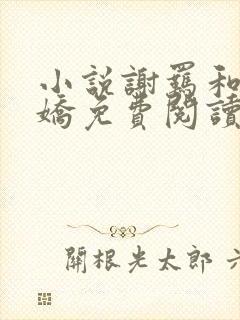 小說謝羁和
嬌免費閱讀
關根光太郎 六